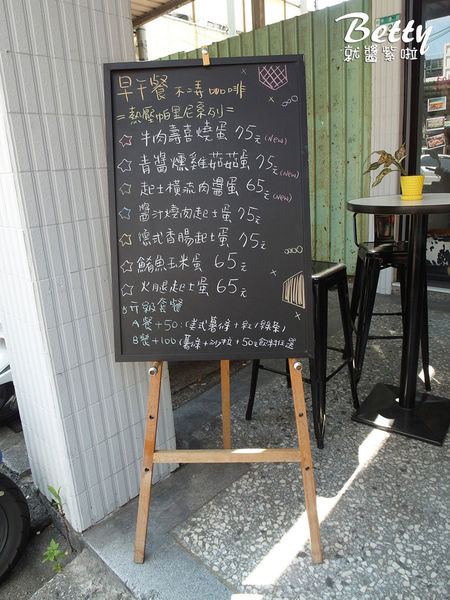 Betty
就醬紫啦
早午餐 不毒咖啡
=熱壓帕里尼系列=
☆牛肉壽喜燒蛋 75元(new)
☆青醬燻雞菇菇蛋 75元(new)
☆起士橫流肉醬蛋 65元(new)
☆醬汁燒肉起士蛋 75元
☆德式香腸起士蛋 75元
☆鮪魚玉米蛋 65元
☆火腿起士蛋 65元
升級套餐
A餐+50:(美式薯條+紅/綠茶)
B餐+100(薯條+沙拉+50元飲料任選